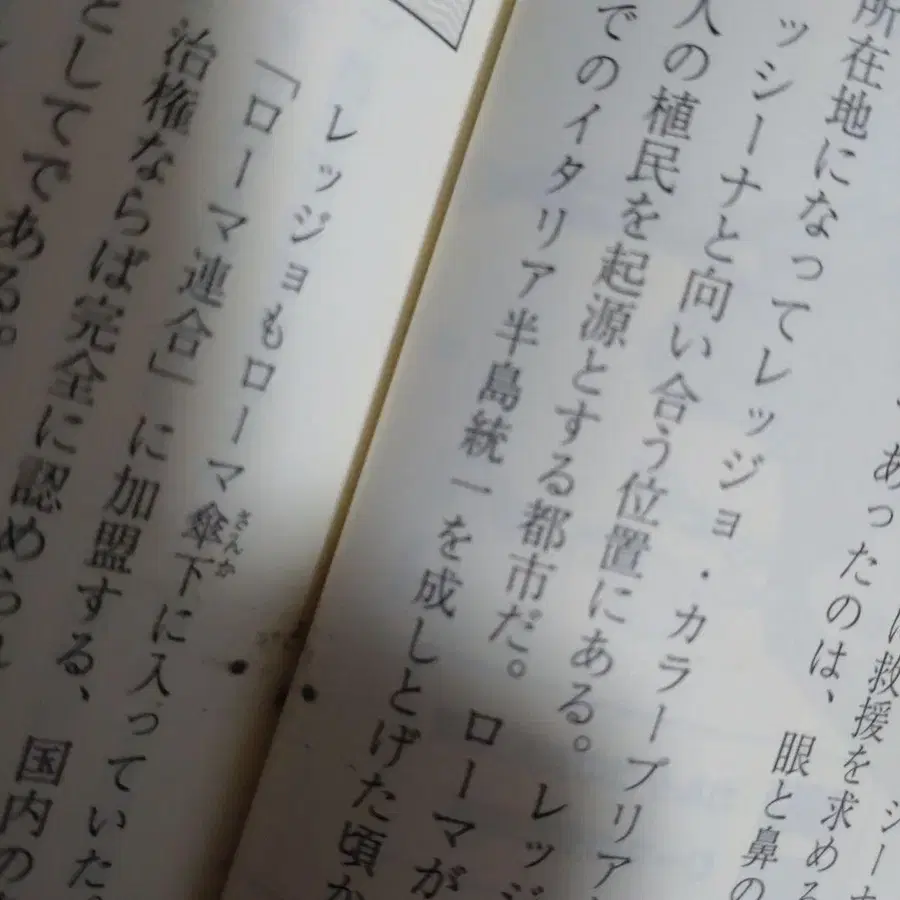 シーナ
救援を求める
あったのは、眼と鼻の
所在地になってレッジョ・カラーブリア
ッシーナと向い合う位置にある。レッジ
人の植民を起源とする都市だ。ローマが
でのイタリア半島統一を成しとげた頃か
レッジョもローマ傘下に入っていた
さんか
「ローマ連合」に加盟する、国内の
治権ならば完全に認められ
としてである。